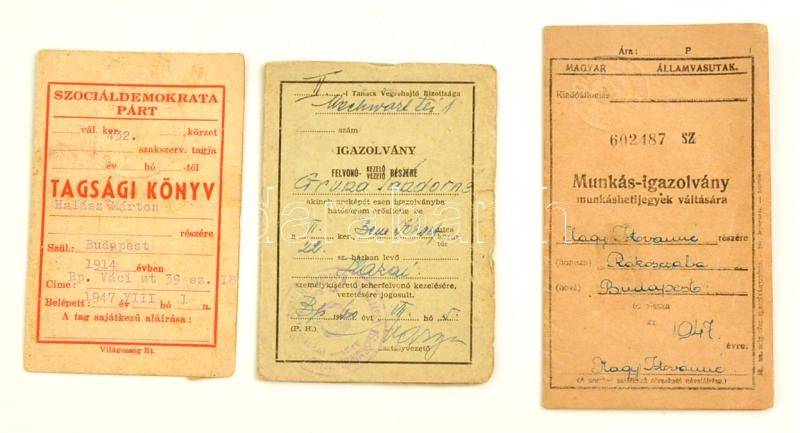 SZOCIÁLDEMOKRATA
PÁRT
vál. ker. 432. körzet
szakszerv. tagja
év hó -tól
TAGSÁGI KÖNYV
Halász Márton
részére
Szül.: Budapest
1914 évben
Bp. Váci ut 39 sz. 18
Címe:
Belépett: 1947 év VIII hó 1 n.
A tag sajátkezű aláírása:
Világosság Rt.
II -i Tanács Végrehajtó Bizottsága
szám
IGAZOLVÁNY
FELVONÓ- KEZELŐ VEZETŐ RÉSZÉRE
akinek arcképét ezen igazolványba
hatóságom erősítette be
II. ker. utca
22. sz. házban levő
személykísérető teherfelvonó kezelésére,
vezetésére jogosult.
Bp. évi hó 5.
(P. H.)
osztályvezető
Ára: P
MAGYAR ÁLLAMVASUTAK.
Kiadóállomás
602487 SZ
Munkás-igazolvány
munkáshetijegyek váltására
Nagy Istvánné részére
(honnan) Rákoscsaba
(hová) Budapest
és vissza
az 1947. évre.
Nagy Istvánné